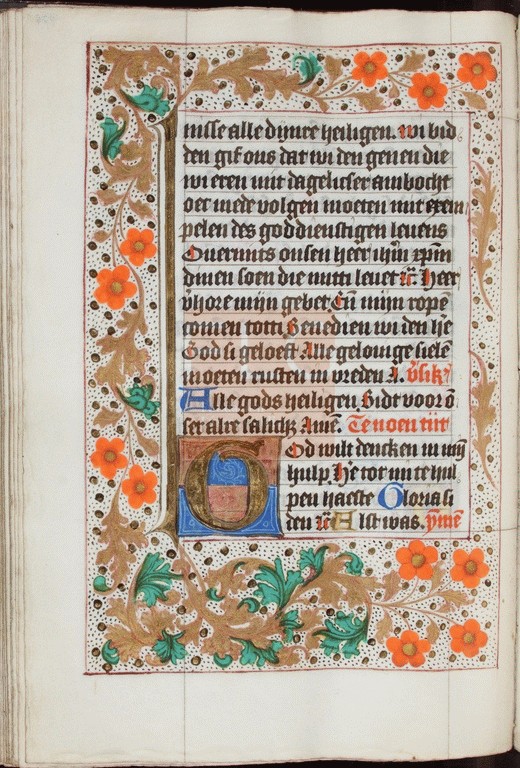 nisse alle dynre heiligen. wi bid
den gif ons dat wi den genen die
wi eren mit dagelicser ambocht
oec mede volgen moeten mit exem
pelen des goddienstigen leuens
Ouermits onsen heer ihm xpm
dinen soen die mitti leuet Heer
vhore mijn gebet En mijn rope
comen totti Benedien wi den he
God si geloeft Alle gelouige siele
moeten rusten in vreden A.
Alle gods heiligen Bidt voor o
ser alre salich Ame. Te noen tijt
God wilt dencken in mij
hulp He tot mi te hul
pen haeste Gloria si
den Alst was.